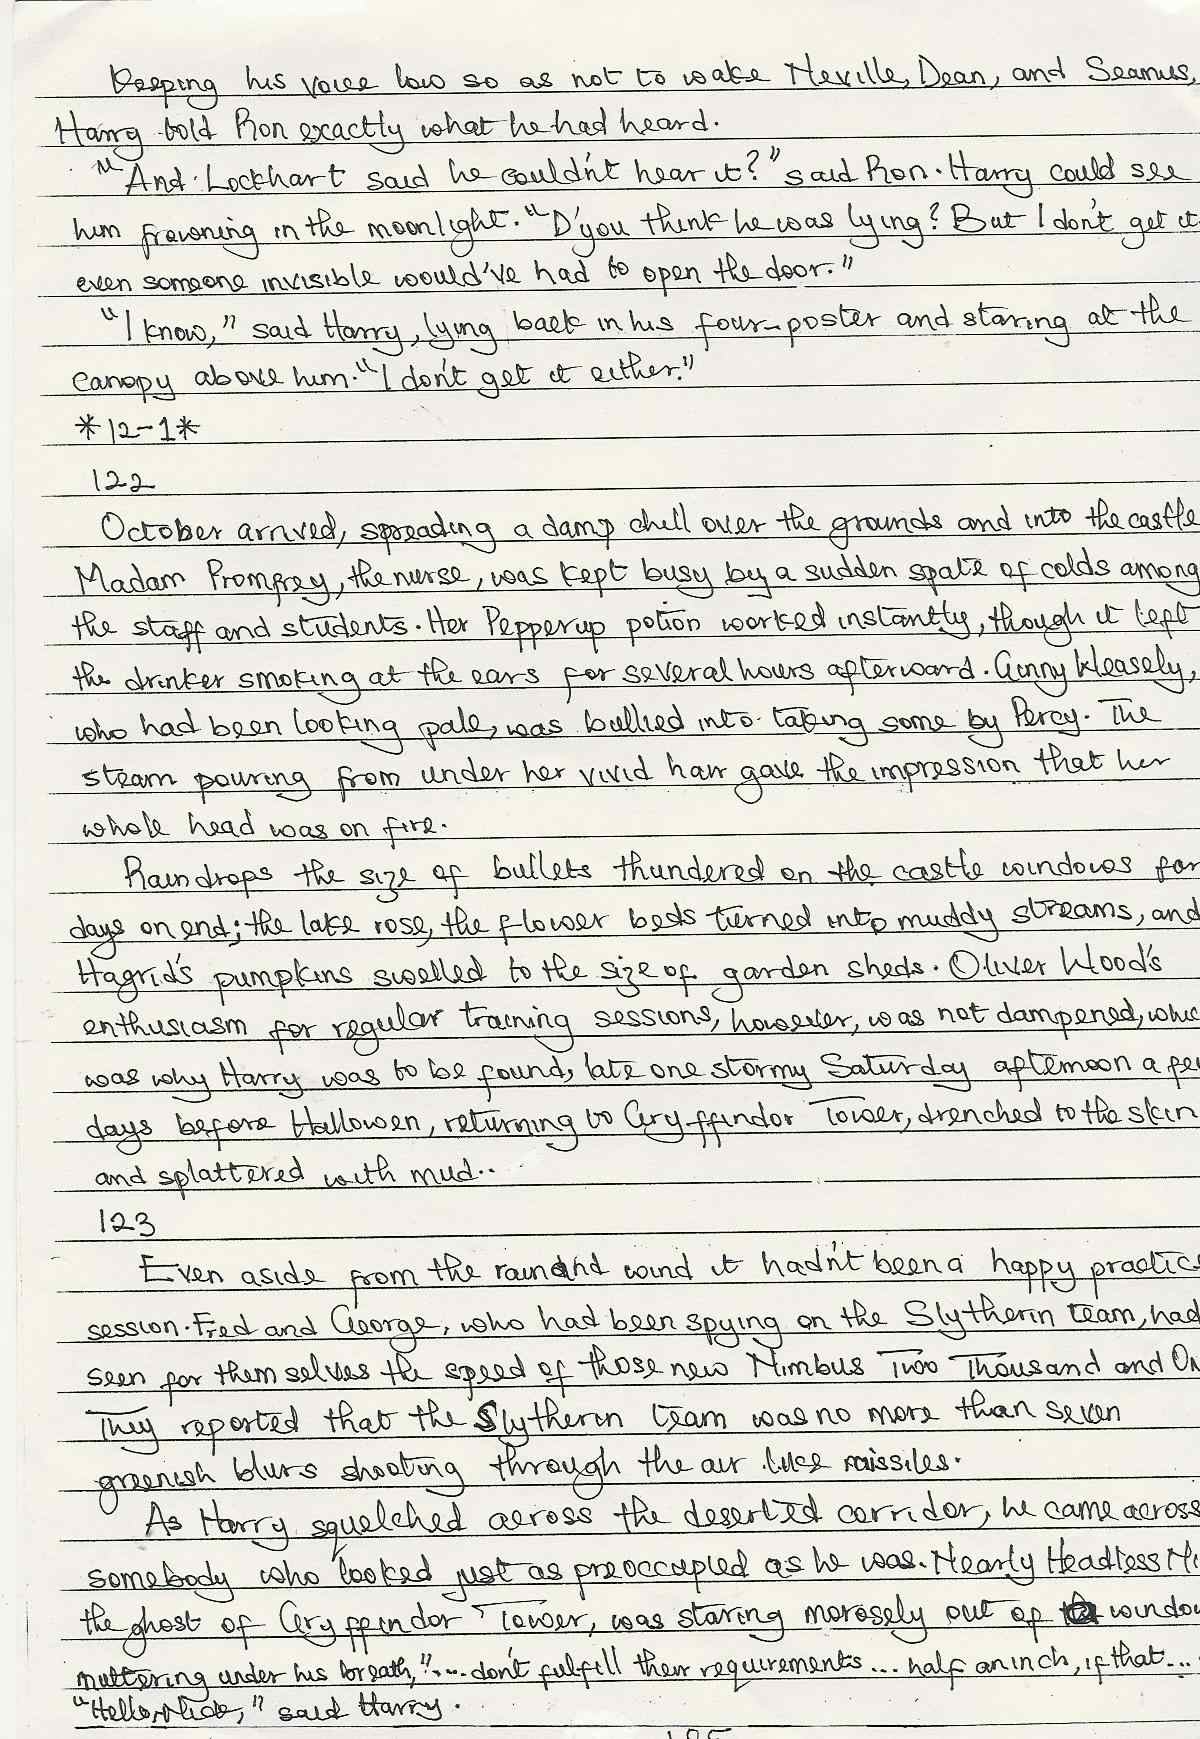 Keeping his voice low so as not to wake Neville, Dean, and Seamus,
Harry told Ron exactly what he had heard.
"And Lockhart said he couldn't hear it?" said Ron. Harry could see
him frowning in the moonlight. "D'you think he was lying? But I don't get it
even someone invisible would've had to open the door."
"I know," said Harry, lying back in his four-poster and staring at the
canopy above him. "I don't get it either."
*12-1*
122
October arrived, spreading a damp chill over the grounds and into the castle
Madam Promfrey, the nurse, was kept busy by a sudden spate of colds among
the staff and students. Her Pepperup potion worked instantly, though it left
the drinker smoking at the ears for several hours afterward. Ginny Weasely,
who had been looking pale, was bullied into taking some by Percy. The
steam pouring from under her vivid hair gave the impression that her
whole head was on fire.
Raindrops the size of bullets thundered on the castle windows for
days on end; the lake rose, the flower beds turned into muddy streams, and
Hagrid's pumpkins swelled to the size of garden sheds. Oliver Wood's
enthusiasm for regular training sessions, however, was not dampened, whic
was why Harry was to be found, late one stormy Saturday afternoon a few
days before Halloween, returning to Gryffindor Tower, drenched to the skin
and splattered with mud..
123
Even aside from the rain and wind it hadn't been a happy practice
session. Fred and George, who had been spying on the Slytherin team, had
seen for themselves the speed of those new Nimbus Two Thousand and On
They reported that the Slytherin team was no more than seven
greenish blurs shooting through the air like missiles.
As Harry squelched across the deserted corridor, he came across
somebody who looked just as preoccupied as he was. Nearly Headless Ni
the ghost of Gryffindor Tower, was staring morosely out of a window
muttering under his breath, ".... don't fulfill their requirements... half an inch, if that...
"Hello, Nick," said Harry.